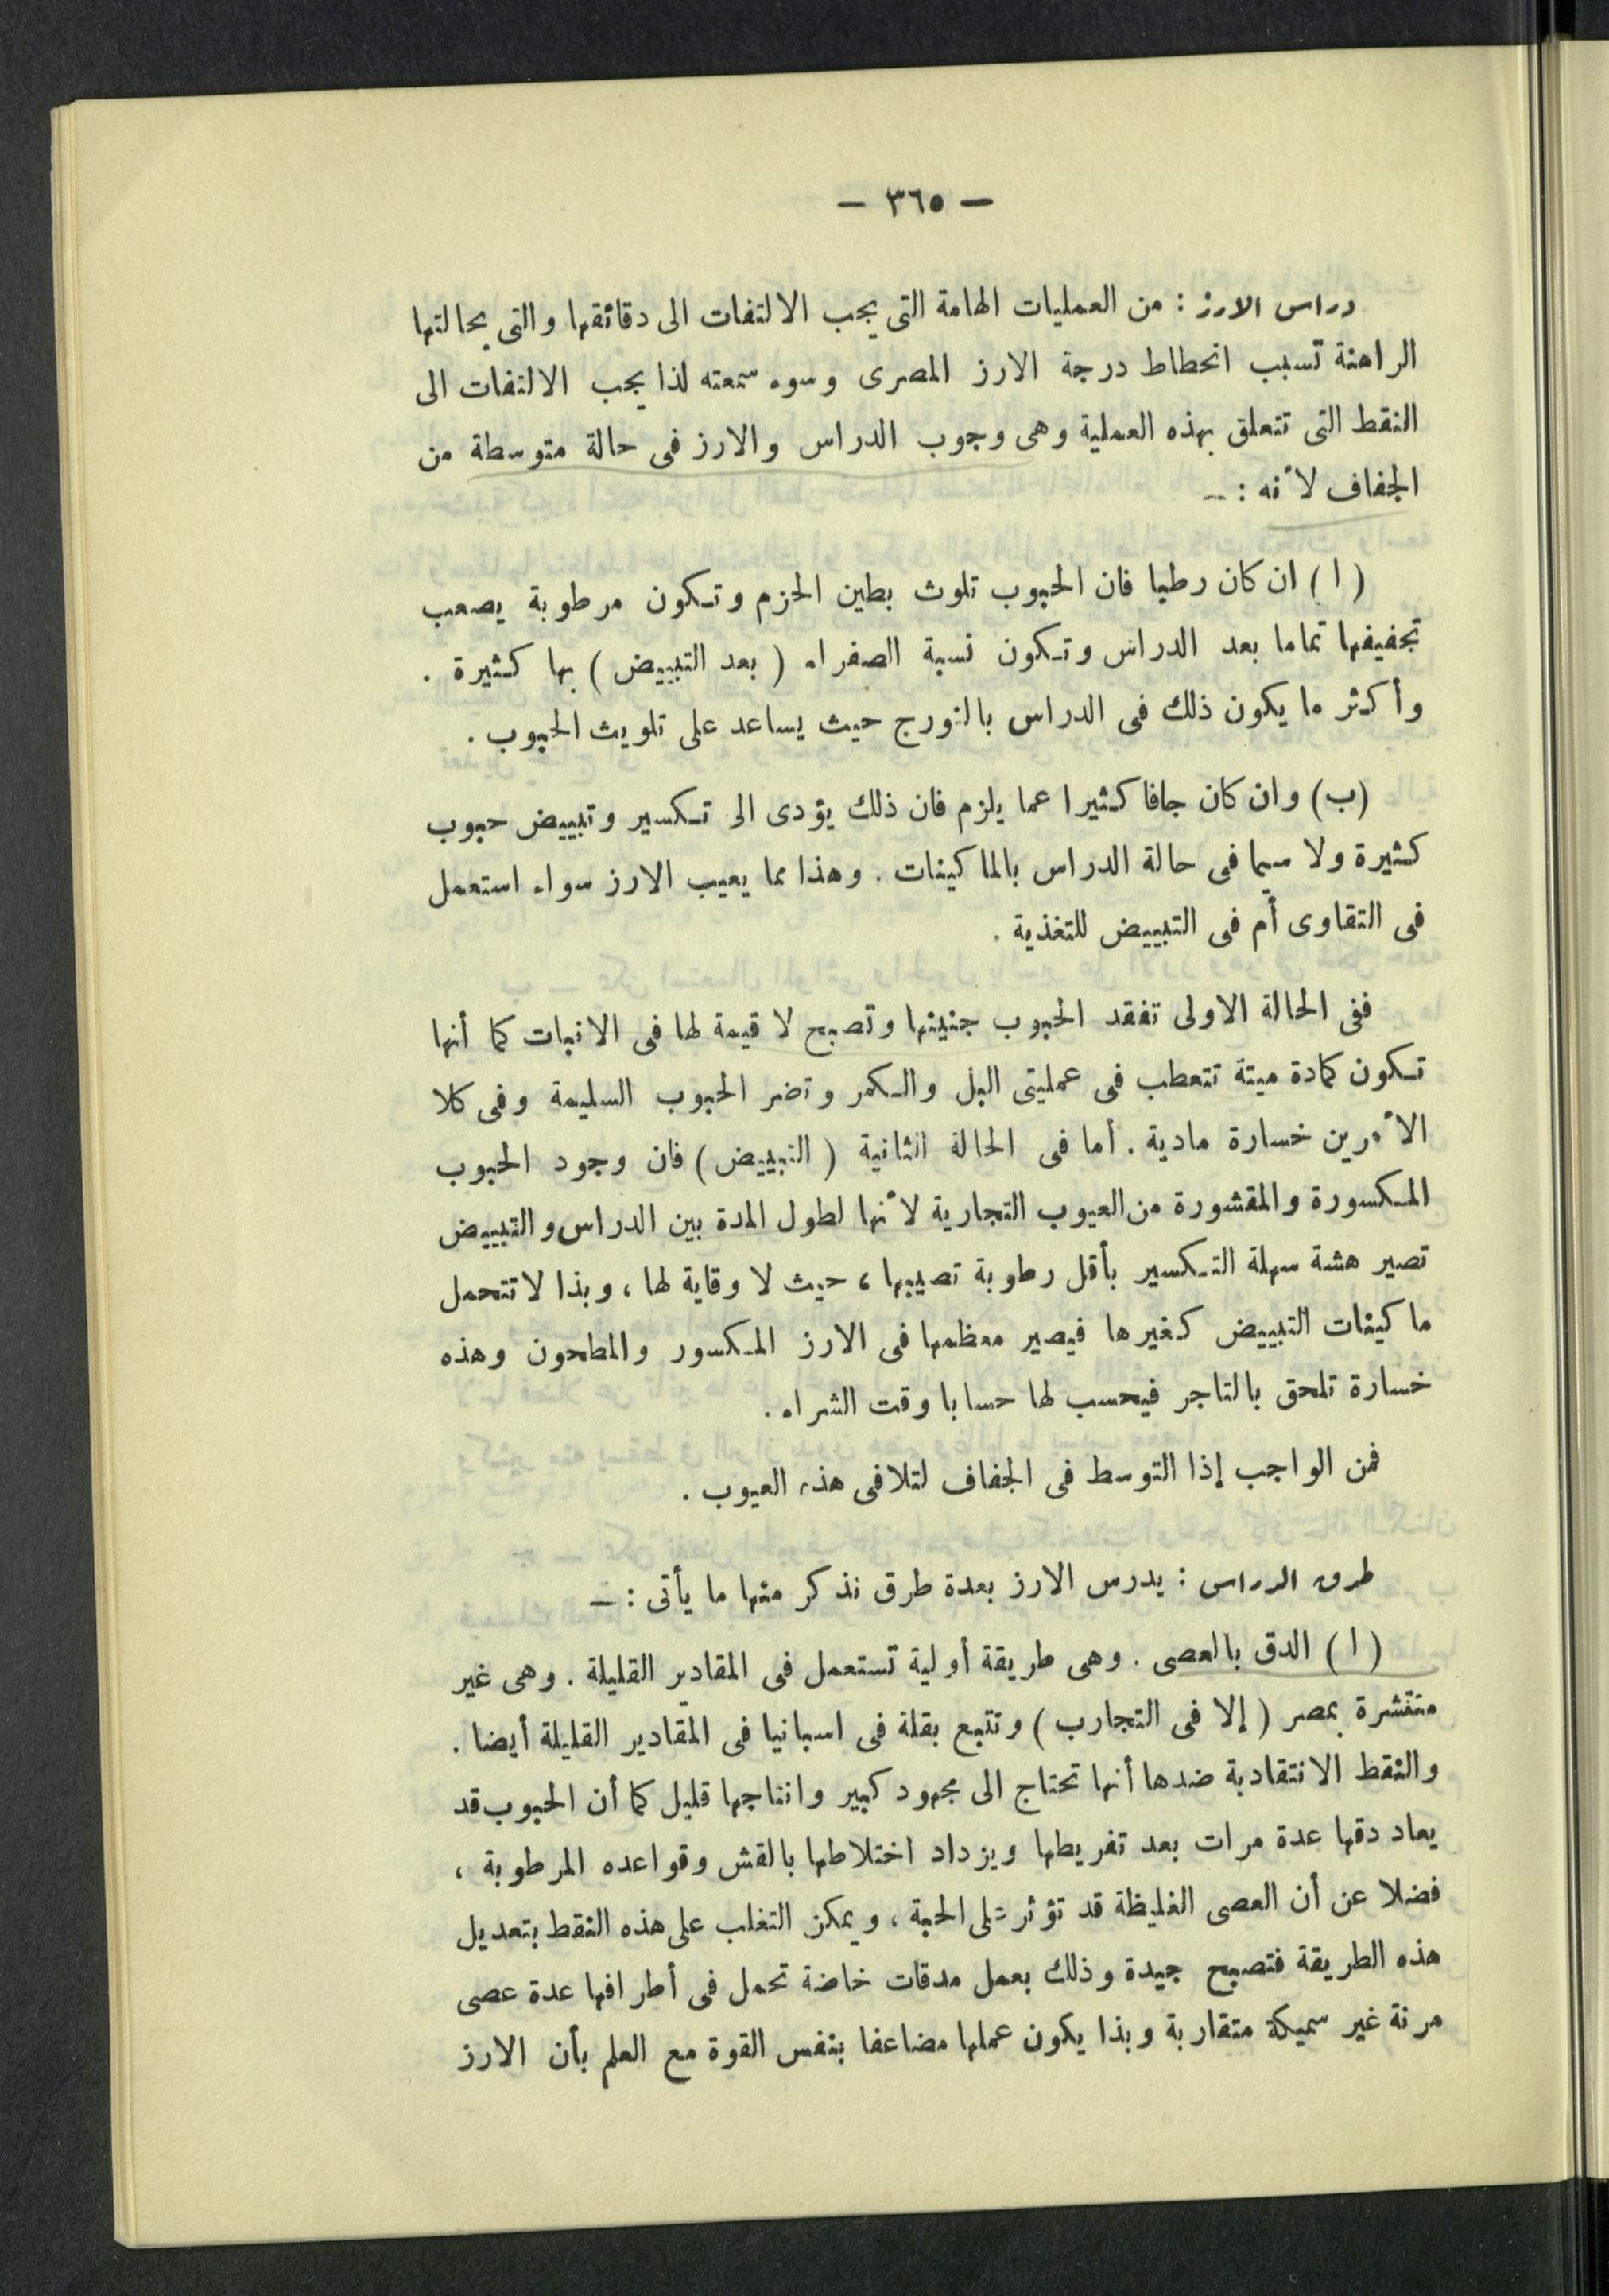 — ٣٦٥ —
دراس الارز : من العمليات الهامة التى يجب الالتفات الى دقائقها والتى بحالتها
الراهنة تسبب انحطاط درجة الارز المصرى وسوء سمعته لذا يجب الالتفات الى
النقط التى تتعلق بهذه العملية وهى وجوب الدراس والارز فى حالة متوسطة من
الجفاف لأنه : —
( ا ) ان كان رطبا فان الحبوب تلوث بطين الحزم وتكون مرطوبة يصعب
تجفيفها تماما بعد الدراس وتكون نسبة الصفراء ( بعد التبييض ) بها كثيرة .
وأكثر ما يكون ذلك فى الدراس بالنورج حيث يساعد على تلويث الحبوب .
(ب) وان كان جافا كثيرا عما يلزم فان ذلك يؤدى الى تكسير وتبييض حبوب
كثيرة ولا سيما فى حالة الدراس بالماكينات . وهذا مما يعيب الارز سواء استعمل
فى التقاوى أم فى التبييض للتغذية .
ففى الحالة الاولى تفقد الحبوب جنينها وتصبح لا قيمة لها فى الانبات كما أنها
تكون كمادة ميتة تتعطب فى عمليتى البل والكمر وتضر الحبوب السليمة وفى كلا
الأمرين خسارة مادية . أما فى الحالة الثانية ( التبييض ) فان وجود الحبوب
المكسورة والمقشورة من العيوب التجارية لأنها لطول المدة بين الدراس والتبييض
تصير هشة سهلة التكسير بأقل رطوبة تصيبها ، حيث لا وقاية لها ، وبذا لا تتحمل
ماكينات التبييض كغيرها فيصير معظمها فى الارز المكسور والمطحون وهذه
خسارة تلحق بالتاجر فيحسب لها حسابا وقت الشراء .
فمن الواجب إذا التوسط فى الجفاف لتلافى هذه العيوب .
طرق الدراس : يدرس الارز بعدة طرق نذكر منها ما يأتى : —
( ا ) الدق بالعصى . وهى طريقة أولية تستعمل فى المقادير القليلة . وهى غير
منتشرة بمصر ( إلا فى التجارب ) وتتبع بقلة فى اسبانيا فى المقادير القليلة أيضا .
والنقط الانتقادية ضدها أنها تحتاج الى مجهود كبير وانتاجها قليل كما أن الحبوب قد
يعاد دقها عدة مرات بعد تفريطها ويزداد اختلاطها بالقش وقواعده المرطوبة ،
فضلا عن أن العصى الغليظة قد تؤثر على الحبة ، ويمكن التغلب على هذه النقط بتعديل
هذه الطريقة فتصبح جيدة وذلك بعمل مدقات خاصة تحمل فى أطرافها عدة عصى
مرنة غير سميكة متقاربة وبذا يكون عملها مضاعفا بنفس القوة مع العلم بأن الارز